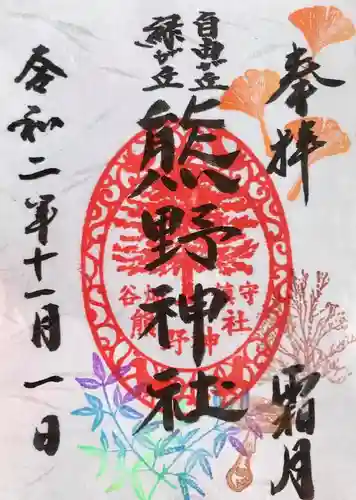 奉拝
霜月
自由が丘
緑が丘
熊野神社
谷畑鎮守
熊野神社
令和二年十一月一日